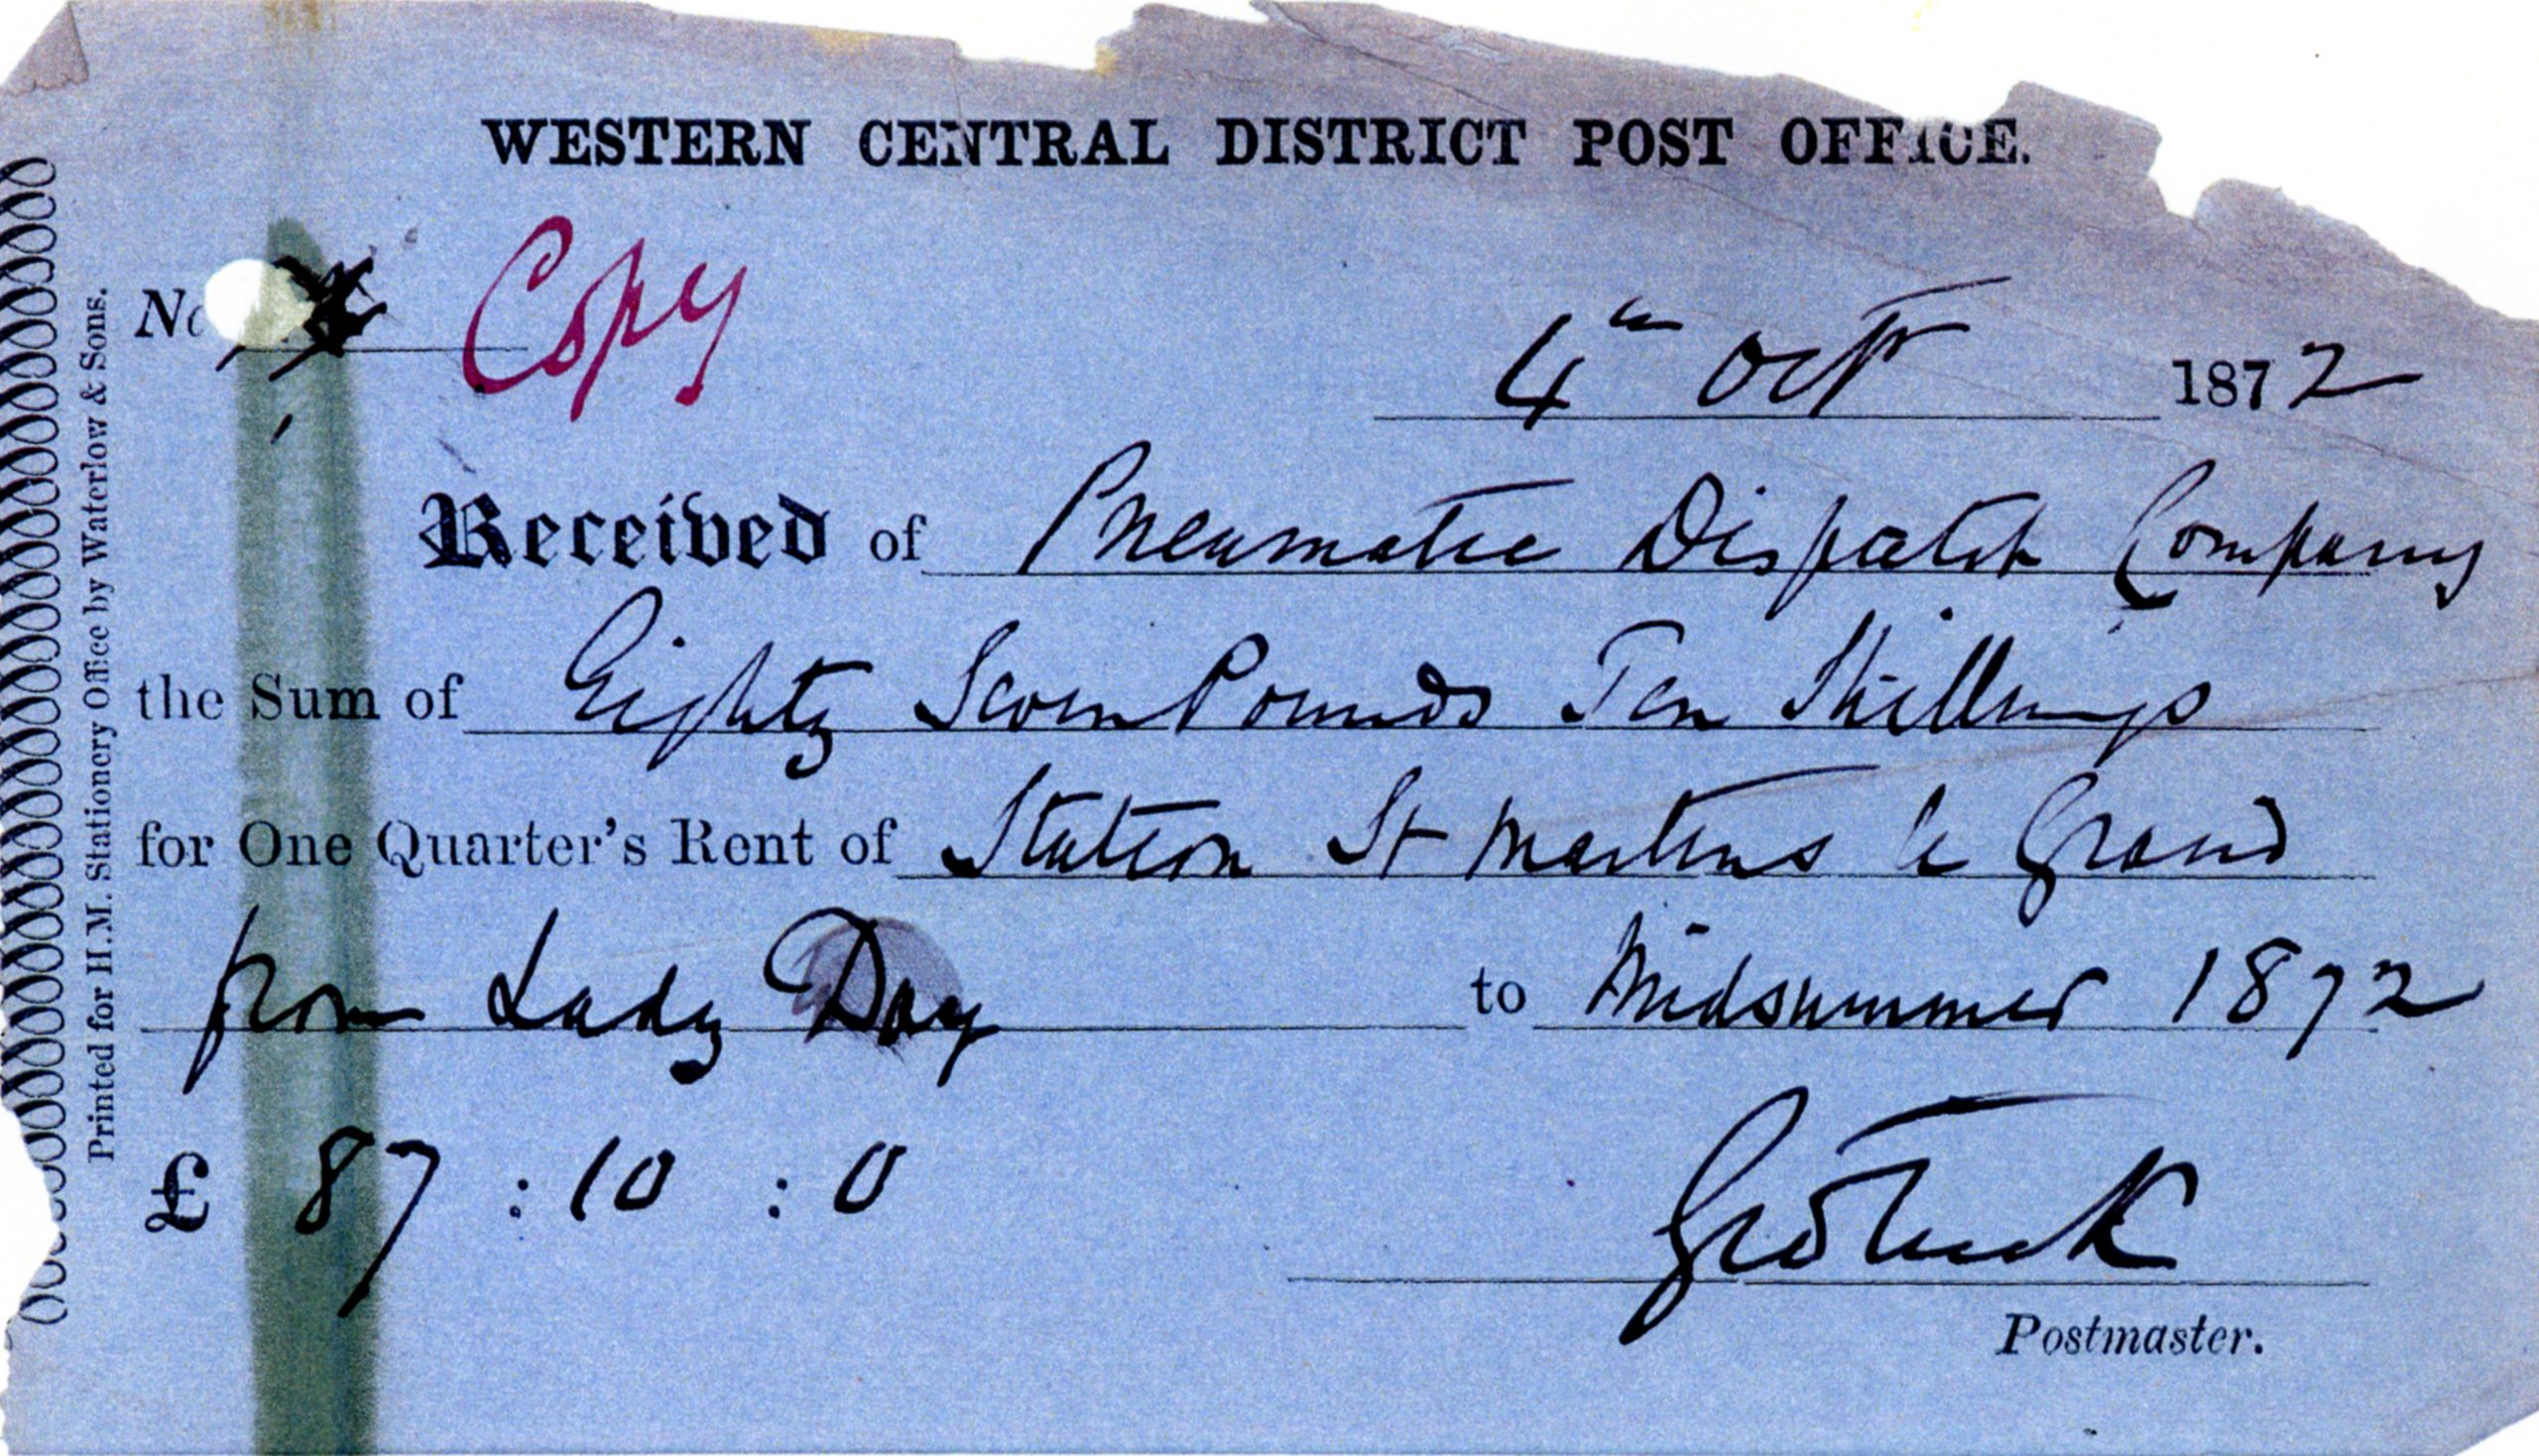 WESTERN CENTRAL DISTRICT POST OFFICE.
No Copy
4th Octr 1872
Received of Pneumatic Dispatch Company
the Sum of Eighty Seven Pounds Ten Shillings
for One Quarter's Rent of Station St Martins le Grand
from Lady Day to Midsummer 1872
£ 87 : 10 : 0
Postmaster.
Printed for H.M. Stationery Office by Waterlow & Sons.